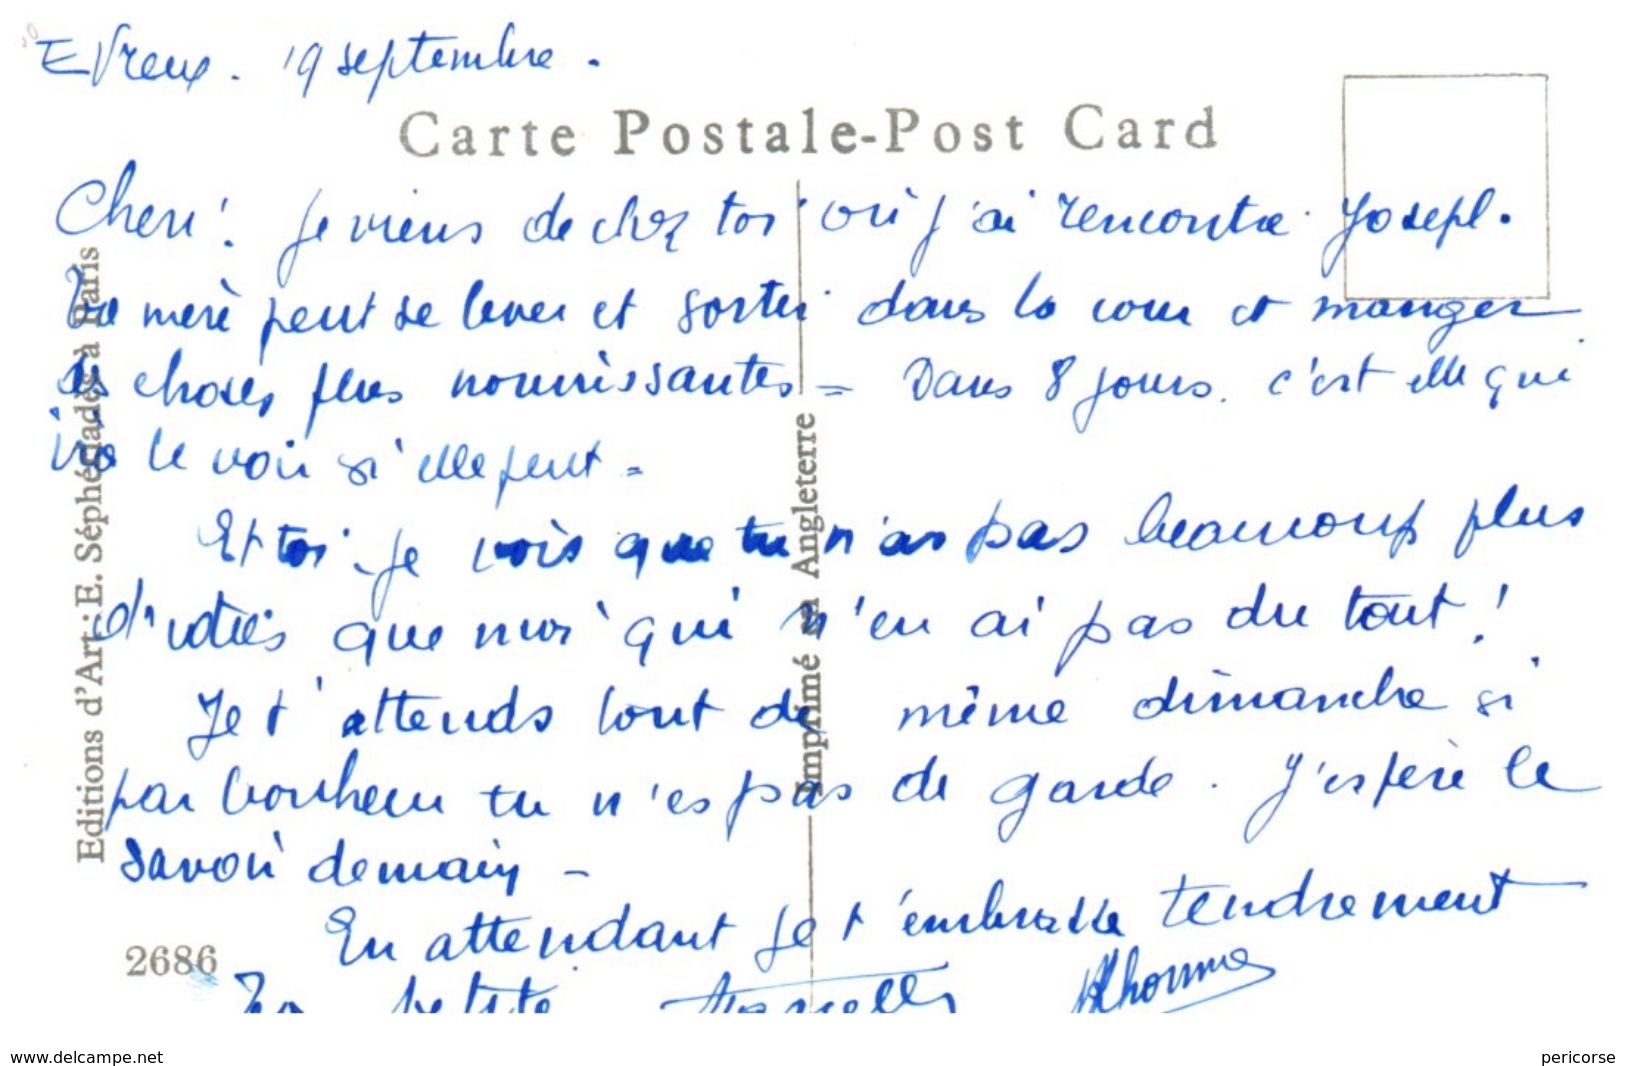 Evreux. 19 septembre.
Carte Postale-Post Card
Cheri! Je viens de chez toi où j'ai rencontré Joseph.
Ta mère peut se lever et sortir dans la cour et manger
des choses plus nourrissantes = Dans 8 jours. c'est elle qui
ira le voir si elle peut =
Et toi. Je vois que tu n'as pas beaucoup plus
d' que moi qui n'en ai pas du tout!
Je t'attends tout de même dimanche si
par bonheur tu n'es pas de garde. J'espère le
savoir demain -
En attendant je t'embrasse tendrement
Ta petite Marcelle
Editions d'Art: E. Séphériadès à Paris
Imprimé en Angleterre
2686
www.delcampe.net
pericorse